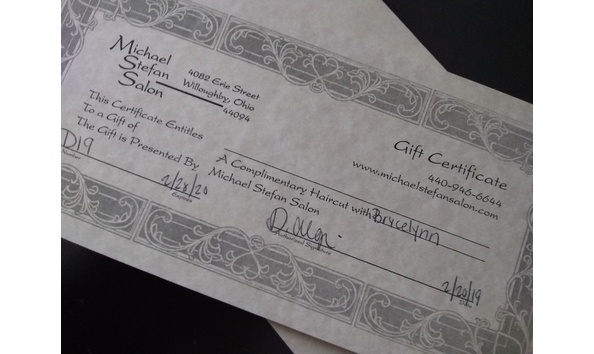 Michael
Stefan
Salon
4082 Erie Street
Willoughby, Ohio
44094
Gift Certificate
440-946-6644
www.michaelstefansalon.com
This Certificate Entitles
To a Gift of A Complimentary Haircut with Brycelynn
The Gift is Presented By Michael Stefan Salon
D19
Number
2/28/20
Expires
Authorized Signature
2/20/19
Date